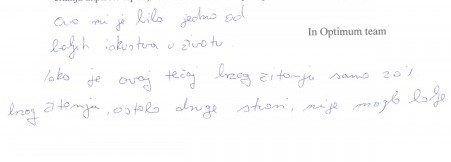 Ovo mi je bilo jedno od
boljih iskustva u životu.
In Optimum team
Iako je ovaj tečaj brzog čitanja samo 20%
brzog čitanja, ostalo druge stvari, nije moglo bolje